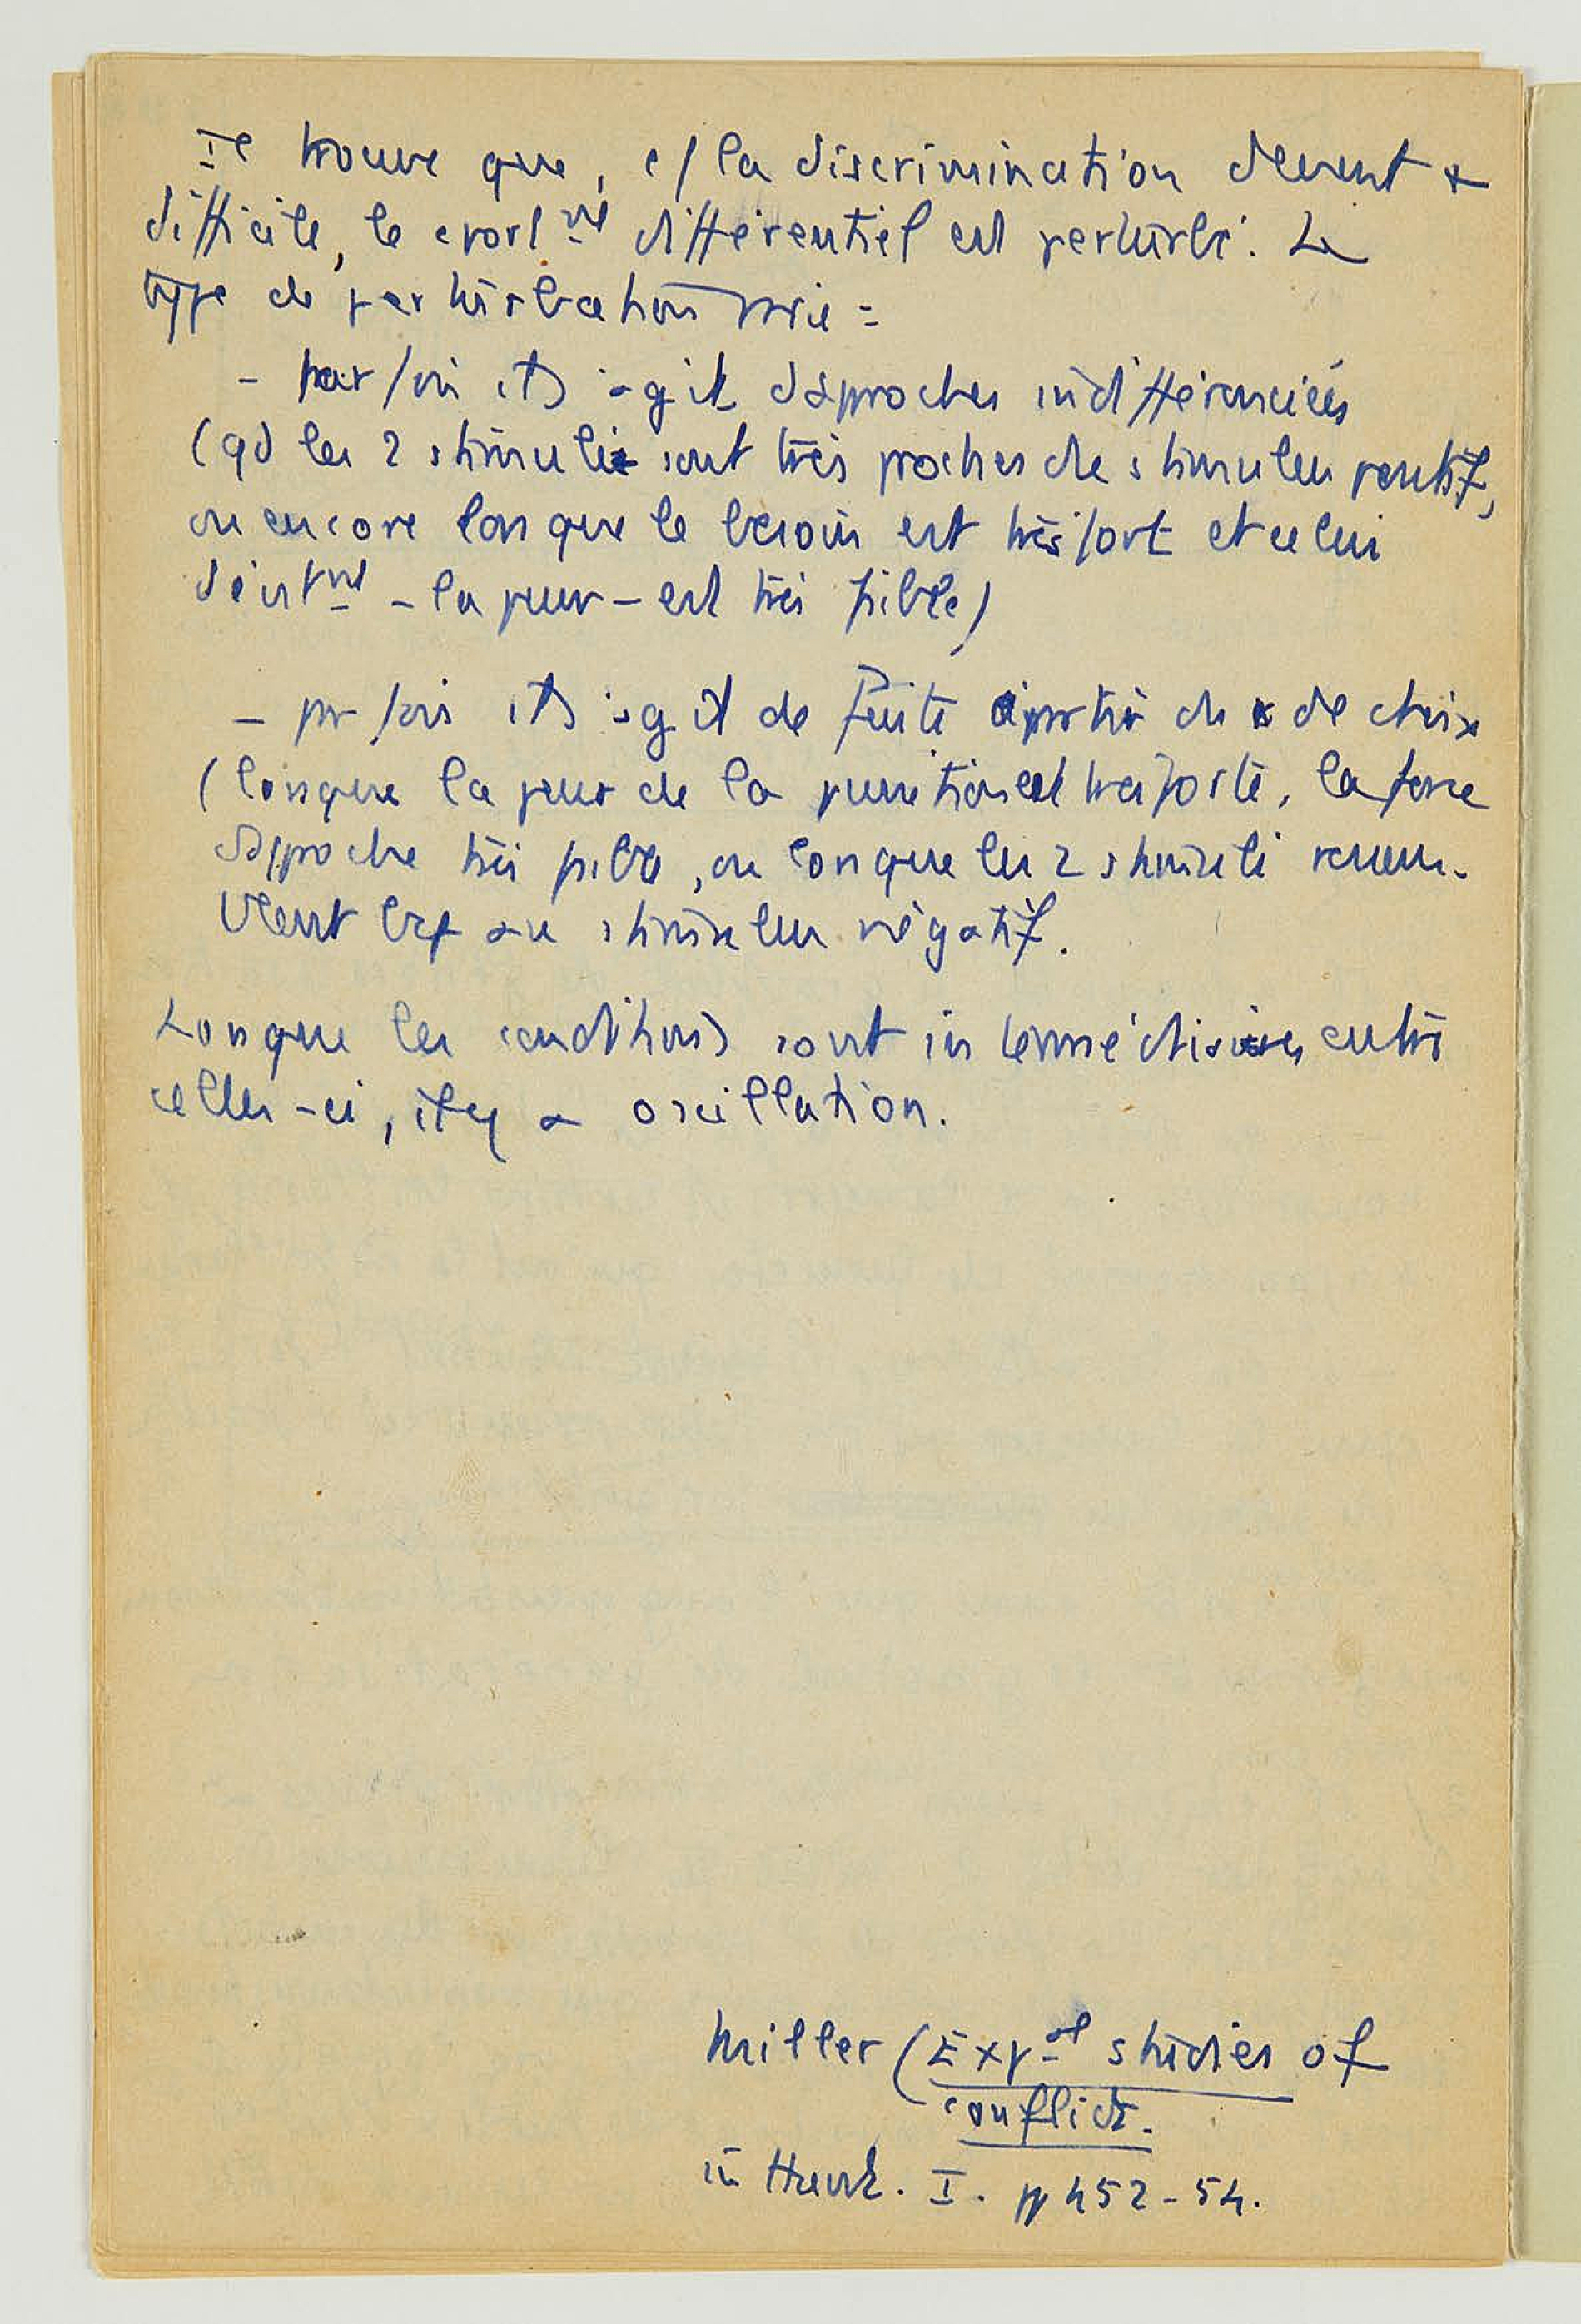 Il trouve que, c/ la discrimination devient +
difficile, le cport^nt différentiel est perturbé. Le
type de perturbation varie :
- parfois il s'agit d'approches indifférenciées
(qd les 2 stimuli sont très proches de stimulus positif,
ou encore lorsque le besoin est très fort et celui
d'évit^nt - la peur - est très faible)
- parfois il s'agit de fuite à partir du de choix
(lorsque la peur de la punition est très forte, la force
d'approche très faible, ou lorsque les 2 stimuli ressem-
blent bcp au stimulus négatif.
Lorsque les conditions sont intermédiaires entre
celles-ci, il y a oscillation.
Miller (Exp^al studies of
conflict.
in Hunt. I. pp 452-54.